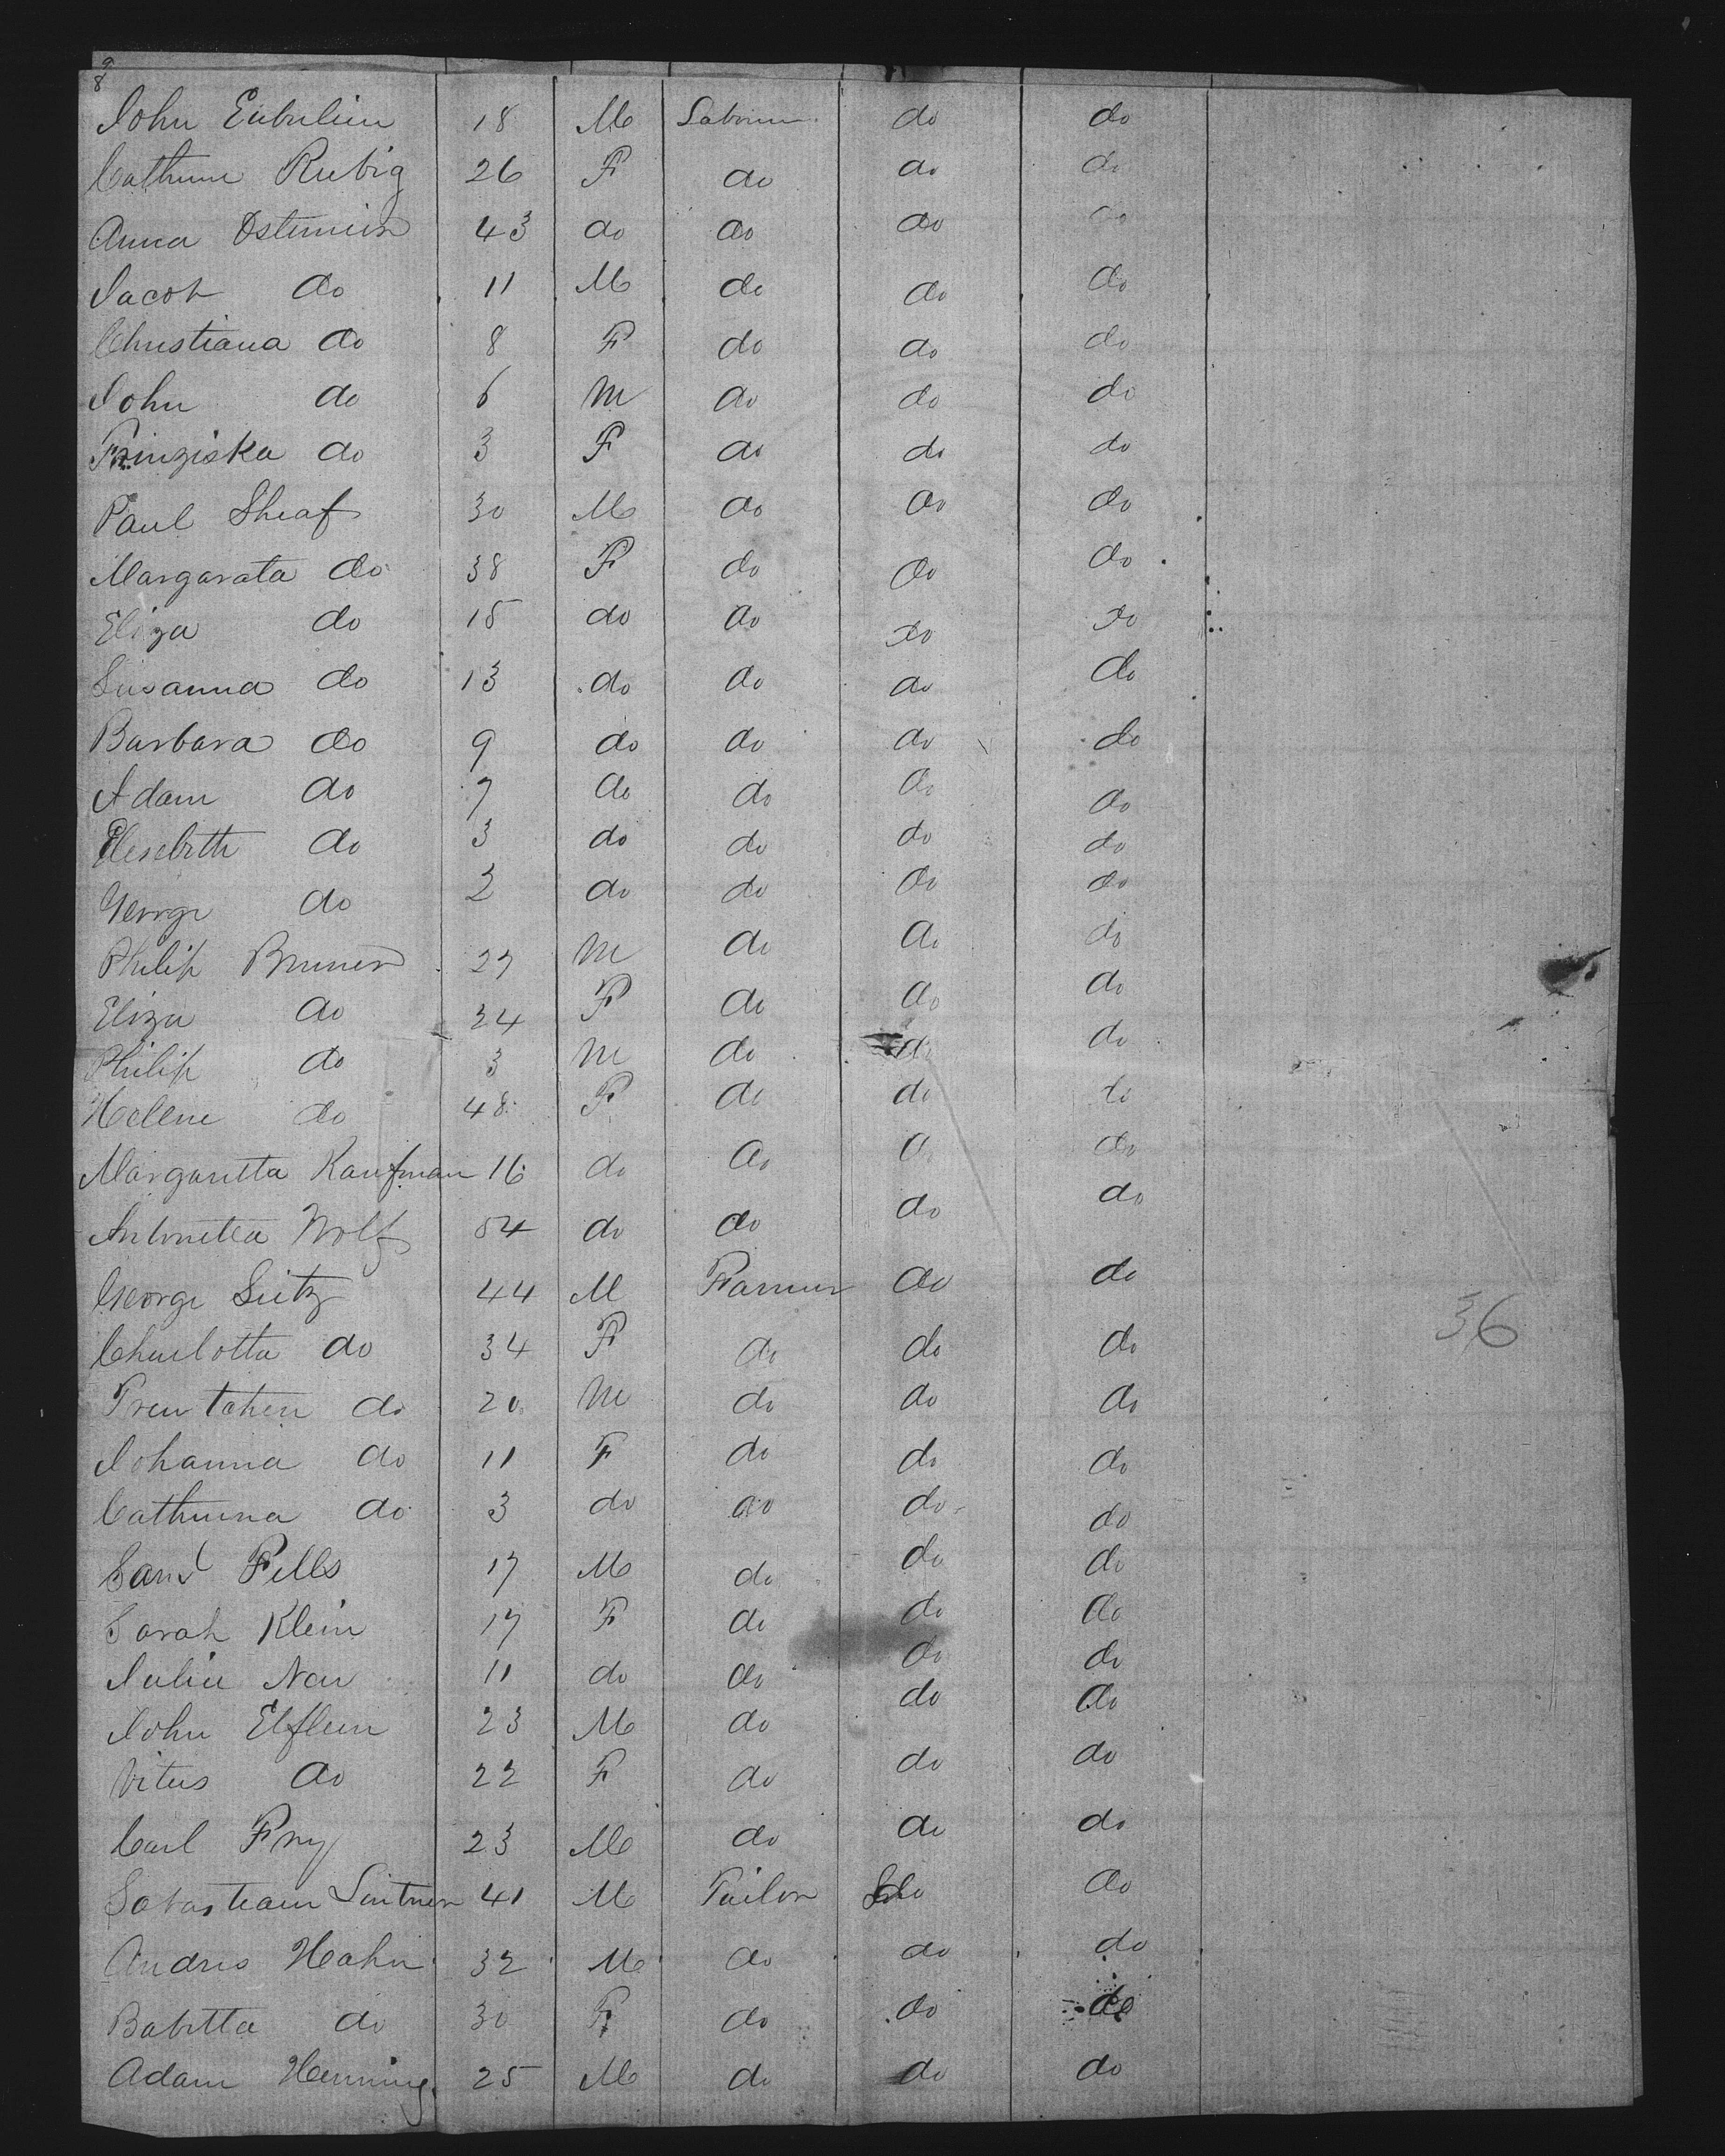 98
John Eubulein 18 M Laborer do do
Cathrine Rubig 26 F do do do
Anna Ostermien 43 do do do do
Jacob do 11 M do do do
Christiana do 8 F do do do
John do 6 M do do do
Franziska do 3 F do do do
Paul Sheaf 30 M do do do
Margarata do 38 F do do do
Eliza do 15 do do do do
Susanna do 13 do do do do
Barbara do 9 do do do do
Adam do 7 do do do do
Elesebeth do 3 do do do do
George do 2 do do do do
Philip Brunner 27 M do do do
Eliza do 24 F do do do
Philip do 3 M do do do
Helene do 48 F do do do
Margaretta Kaufman 16 do do do do
Antonetta Wolf 54 do do do do
George Seitz 44 M Farmer do do
Charlotta do 34 F do do do
do 20 M do do do
Johanna do 11 F do do do
Catherina do 3 do do do do
Fells 17 M do do do
Sarah Klein 17 F do do do
Julia Nau 11 do do do do
John Elflein 23 M do do do
Vitus do 22 F do do do
Carl Frey 23 M do do do
Sabastiam Lintner 41 M Tailor do do
Andres Hahn 32 M do do do
Babetta do 30 F do do do
Adam Henning 25 M do do do
36